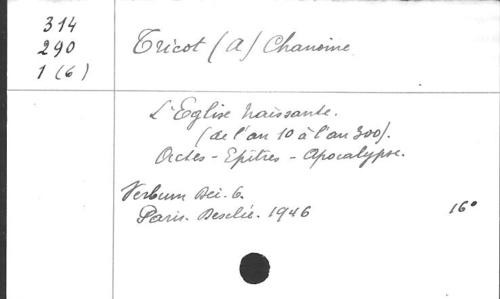 314
290
1 (6)
Tricot (A) Chanoine
L'Eglise naissante.
(de l'an 10 à l'an 300).
Actes - Epîtres - Apocalypse.
Verbum Dei. 6.
Paris. Desclée. 1946
16°